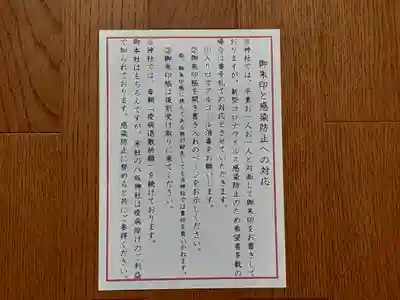 御朱印と感染防止への対応
当神社では、平素お一人お一人と対面して御朱印をお書きして
おりますが、新型コロナウイルス感染防止のため希望者多数の
場合は番号札での対応とさせていただきます。
①入り口でアルコール消毒をお願いします。
②御朱印帳を開き書き入れのページをお示しください。
③御朱印帳は後刻受け取りに来てください。
当神社では、毎朝「疫病退散祈願」を続けております。
御本社はもちろんですが、末社の八坂神社は疫病除けのご利益
で知られております。感染防止に努めると共にご参拝ください。